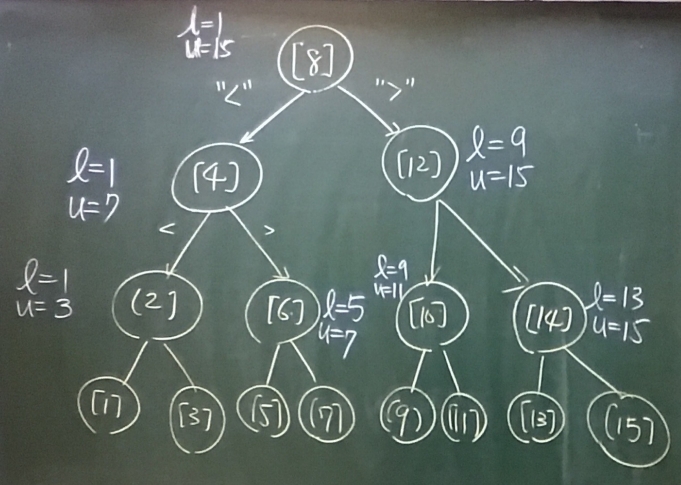 l=1
u=15
[8]
"<" ">"
l=1
u=7
[4]
[12]
l=9
u=15
< >
l=1
u=3
(2]
[6]
l=5
u=7
l=9
u=11
[10]
[14]
l=13
u=15
[1] [3] [5] [7] (9) [11] [13] [15]